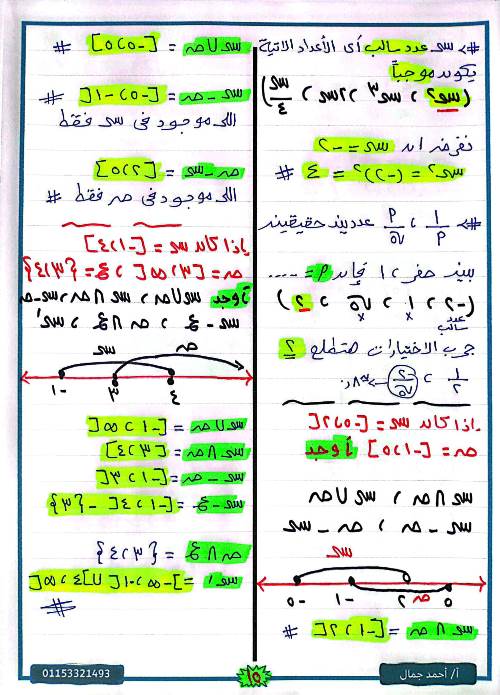 # س عدد سالب أى الأعداد الآتية
يكون موجباً
(س٢ ، س٣ ، ٢س ، س/٤)
نفرض ان س = -٢
س٢ = (-٢)٢ = ٤ #
# ١/م ، م/√٥ عددين حقيقيين
بين صفر ، ١ فإن م = ....
(-٢ ، ١ ، √٥ ، ٢)
عدد سالب x x
جرب الاختيارات هتطلع ٢
١/٢ ، ٢/√٥ → ٠٫٨٩
إذا كان س = [-٥ ، ٢[
ص = [-١ ، ٥] أوجد
س ∩ ص ، س ∪ ص
س - ص ، ص - س
س
-٥ -١ ٢ ص ٥
س ∩ ص = [-١ ، ٢[ #
س ∪ ص = [-٥ ، ٥] #
س - ص = [-٥ ، -١[ #
اللى موجود فى س فقط
ص - س = [٢ ، ٥]
اللى موجود فى ص فقط #
إذا كان س = [-١ ، ٤]
ص = [٣ ، ∞[ ، ع = {٣ ، ٤}
أوجد س ∪ ص ، س ∩ ص ، س - ص
س - ع ، ص ∩ ع ، س'
س ص
-١ ٣ ٤
س ∪ ص = [-١ ، ∞[
س ∩ ص = [٣ ، ٤]
س - ص = [-١ ، ٣[
س - ع = [-١ ، ٤[ - {٣}
ص ∩ ع = {٣ ، ٤}
س' = ]-∞ ، -١[ ∪ ]٤ ، ∞[
#
01153321493
١٥
أ/ أحمد جمال